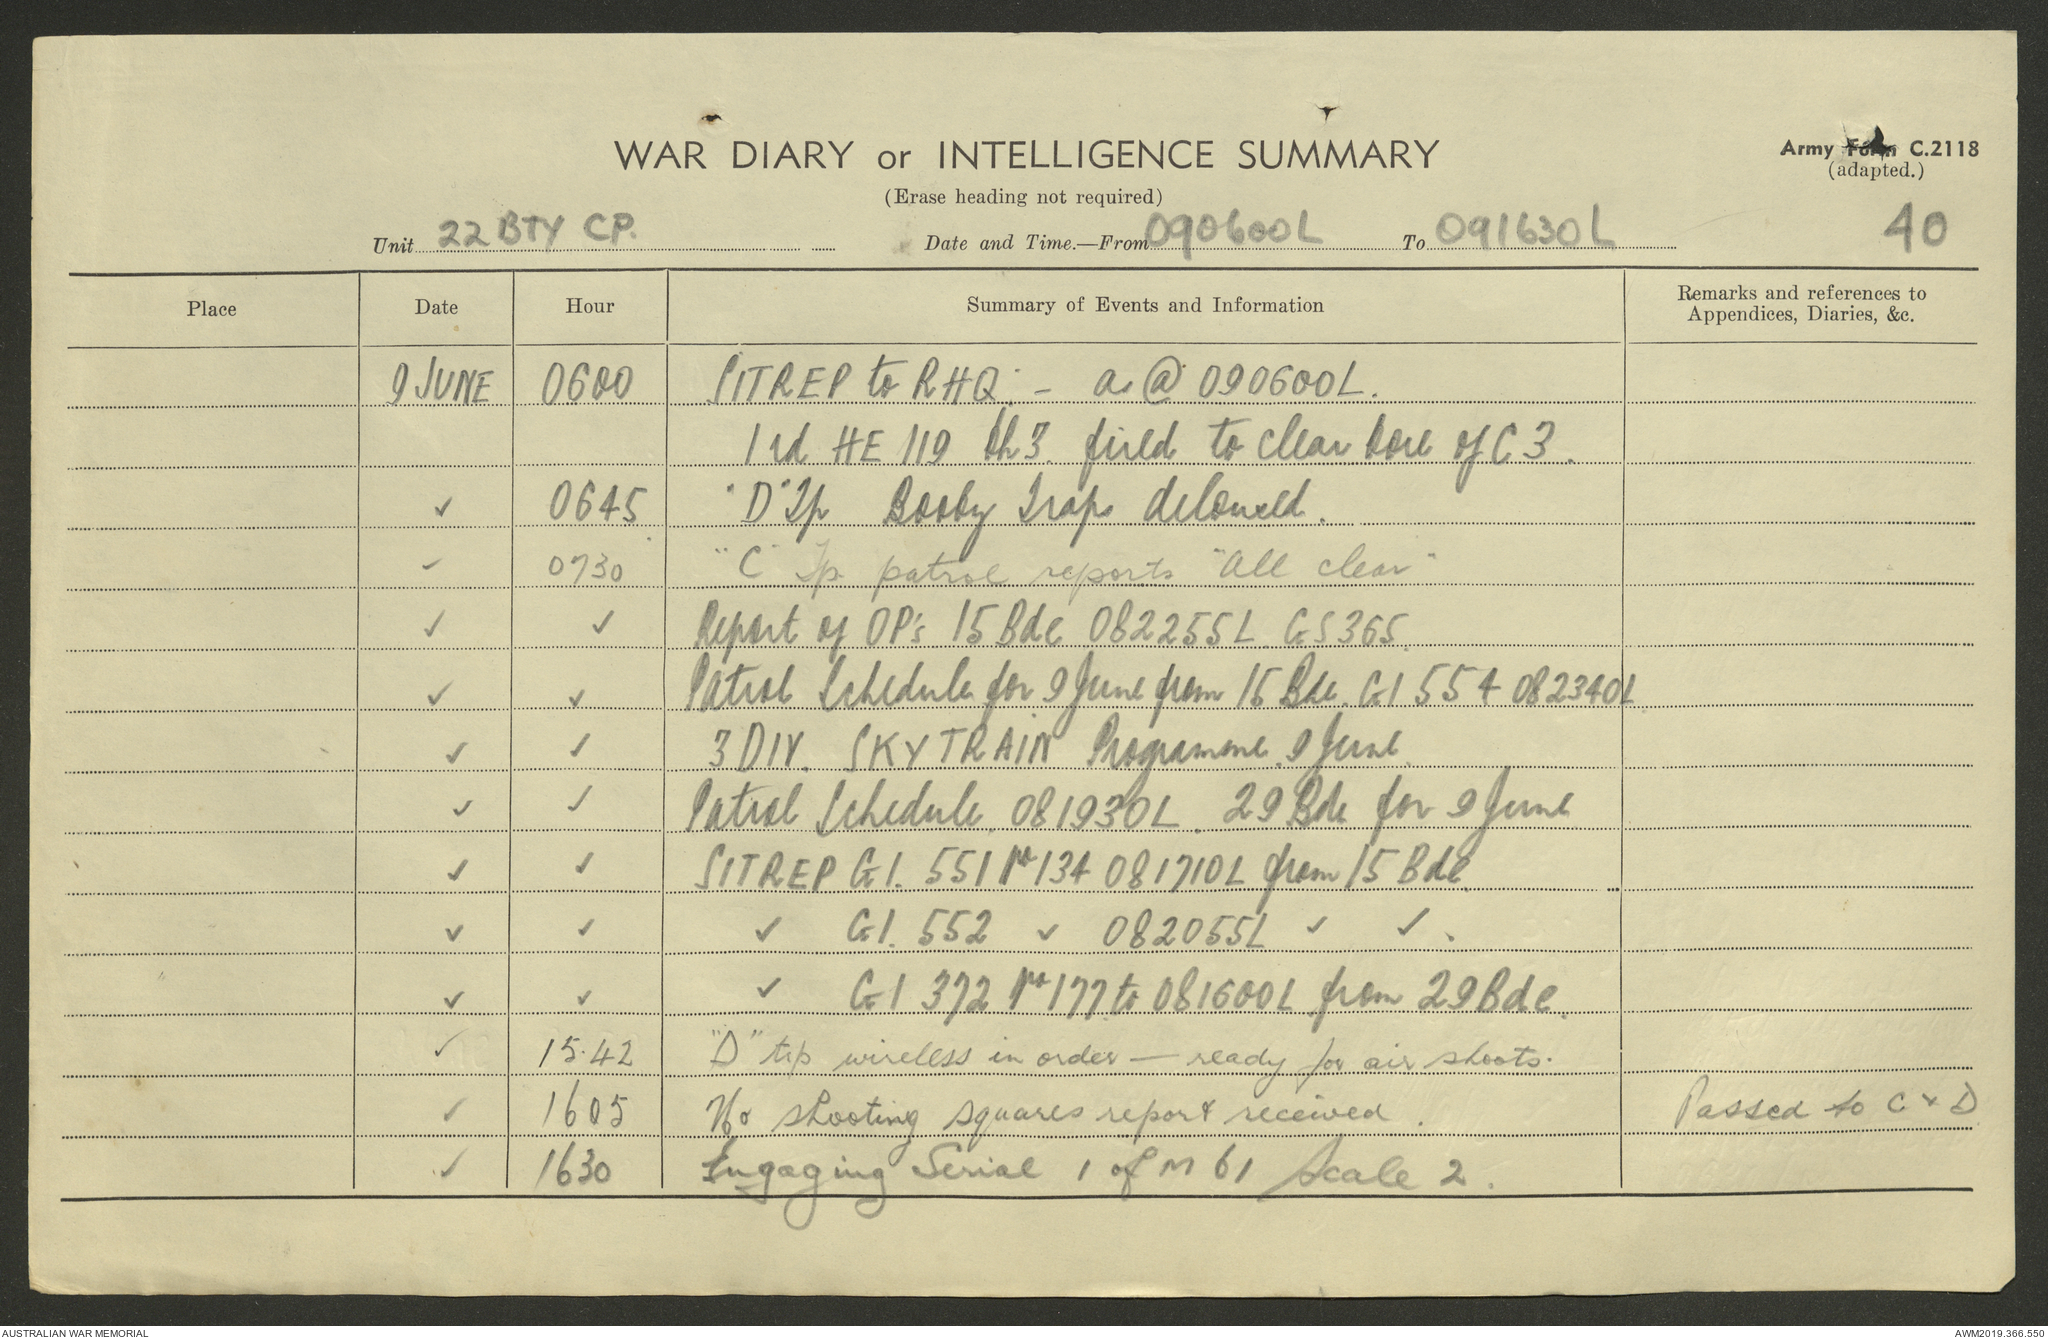 WAR DIARY or INTELLIGENCE SUMMARY
Army Form C.2118
(adapted.)
(Erase heading not required)
40
Unit 22 BTY CP. Date and Time.—From 090600L To 091630L
Place Date Hour Summary of Events and Information Remarks and references to
Appendices, Diaries, &c.
9 JUNE 0600 SITREP to RHQ:- as @ 090600L.
1 rd HE 119 Ch 3. fired to clear bore of C3.
✓ 0645 "D" Tp Booby Traps deloused.
✓ 0730 "C" Tp patrol reports "All clear"
✓ ✓ Report of OP's 15 Bde 082255L GS365
✓ ✓ Patrol Schedule for 9 June from 15 Bde. G1 554 082340L
✓ ✓ 3 DIV. SKYTRAIN Programme 9 June.
✓ ✓ Patrol Schedule 081930L. 29 Bde for 9 June
✓ ✓ SITREP G1. 551 No 134 081710L from 15 Bde.
✓ ✓ ✓ G1. 552 ✓ 082055L ✓ ✓.
✓ ✓ ✓ G1 372 No 177 to 081600L from 29 Bde.
✓ 15.42 "D" trp wireless in order — ready for air shoots.
✓ 1605 No shooting squares report received. Passed to C & D
✓ 1630 Engaging Serial 1 of M 61 Scale 2.
AUSTRALIAN WAR MEMORIAL
AWM2019.366.550